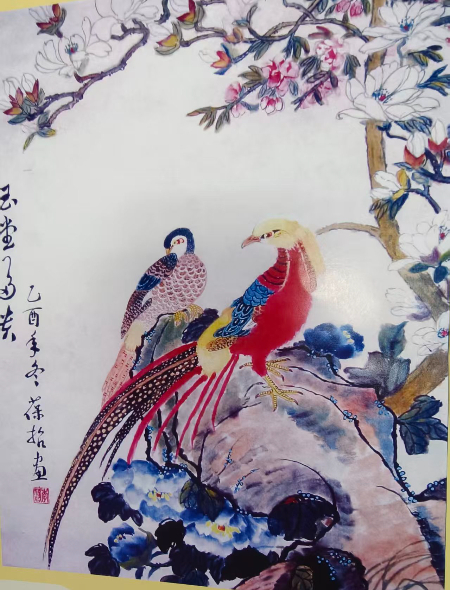 玉堂富贵
乙酉年冬葆拾画